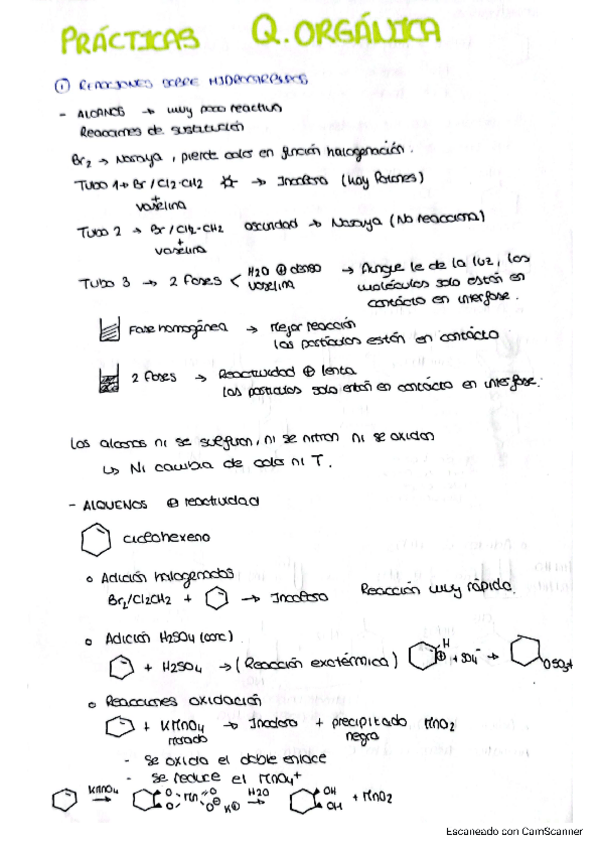 PRÁCTICAS Q. ORGÁNICA
① REACCIONES SOBRE HIDROCARBUROS
- ALCANOS → muy poco reactivo
Reacciones de sustitución
Br2 → Naranja, pierde color en función halogenación.
Tubo 1 → Br / Cl2-CH2 → Incoloro (hay fotones)
+
vaselina
Tubo 2 → Br / Cl2-CH2 oscuridad → Naranja (No reacciona)
+
vaselina
Tubo 3 → 2 Fases < H2O ⊕ denso → Aunque le de la luz, las
vaselina moléculas solo están en
contacto en interfase.
Fase homogénea → Mejor reacción
las partículas están en contacto
2 Fases → Reactividad ⊕ lenta
las partículas solo están en contacto en interfase.
Los alcanos ni se sulfuran, ni se nitran ni se oxidan
↳ Ni cambia de color ni T.
- ALQUENOS ⊕ reactividad
ciclohexeno
o Adición halogenados
Br2/Cl2CH2 + → Incoloro Reacción muy rápida.
o Adición H2SO4 (conc)
+ H2SO4 → (Reacción exotérmica) H ⊕ + SO4⁻ → OSO3H
o Reacciones oxidación
+ KMnO4 → Incoloro + precipitado MnO2
rosado negro
- Se oxida el doble enlace
- Se reduce el MnO4+
KMnO4 → O O Mn O O⊖ K⊕ H2O → OH OH + MnO2
Escaneado con CamScanner